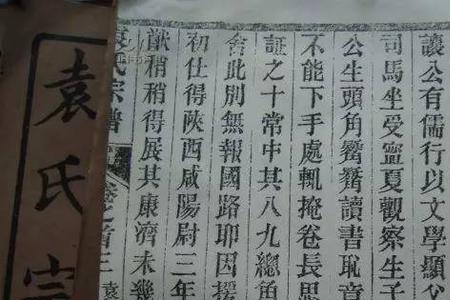 讓公有儒行以文學顯父
司馬坐受寧夏觀察生子
公生頭角嶄嶄讀書恥章
不能下手處輒掩卷長思
証之十常中其八九總角
舍此別無報國路耶因援
初仕得陝西咸陽尉三年
猷稍稍得展其康濟未幾
袁氏宗譜 卷之首三 袁
袁氏宗